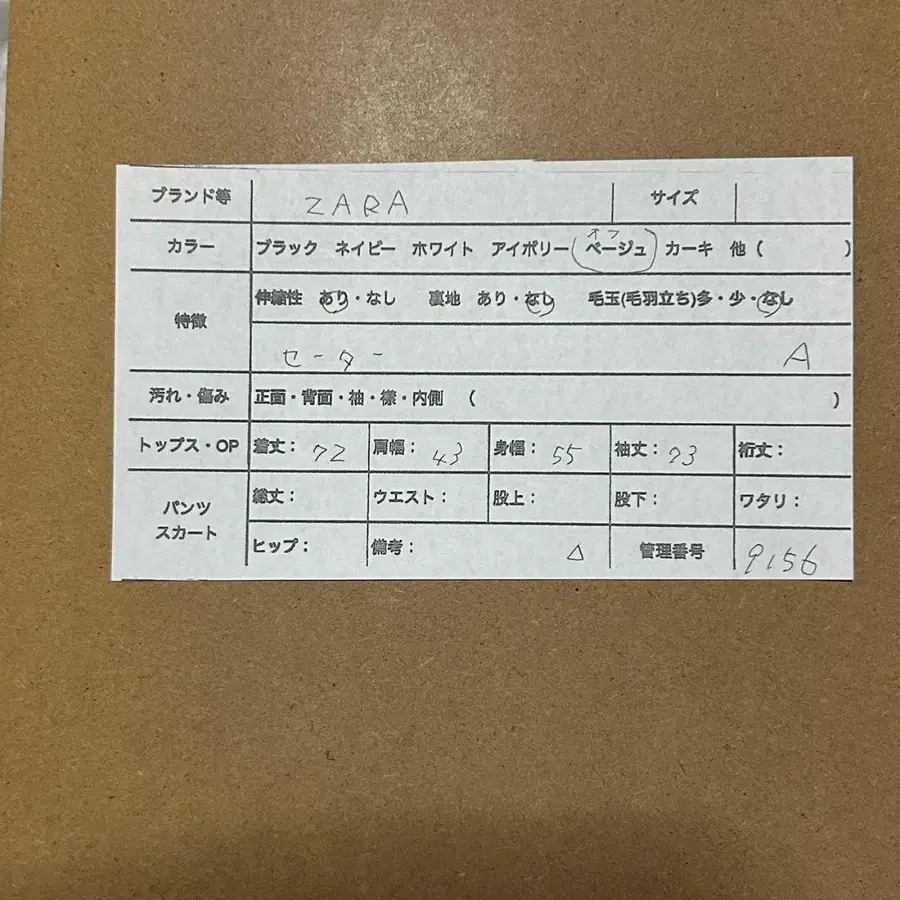 ブランド等 ZARA サイズ
オフ
カラー ブラック ネイビー ホワイト アイボリー ベージュ カーキ 他( )
特徴 伸縮性 あり・なし 裏地 あり・なし 毛玉(毛羽立ち)多・少・なし
セーター A
汚れ・傷み 正面・背面・袖・襟・内側 ( )
トップス・OP 着丈: 72 肩幅: 43 身幅: 55 袖丈: 73 裄丈:
パンツ スカート 総丈: ウエスト: 股上: 股下: ワタリ:
ヒップ: 備考: △ 管理番号 9156